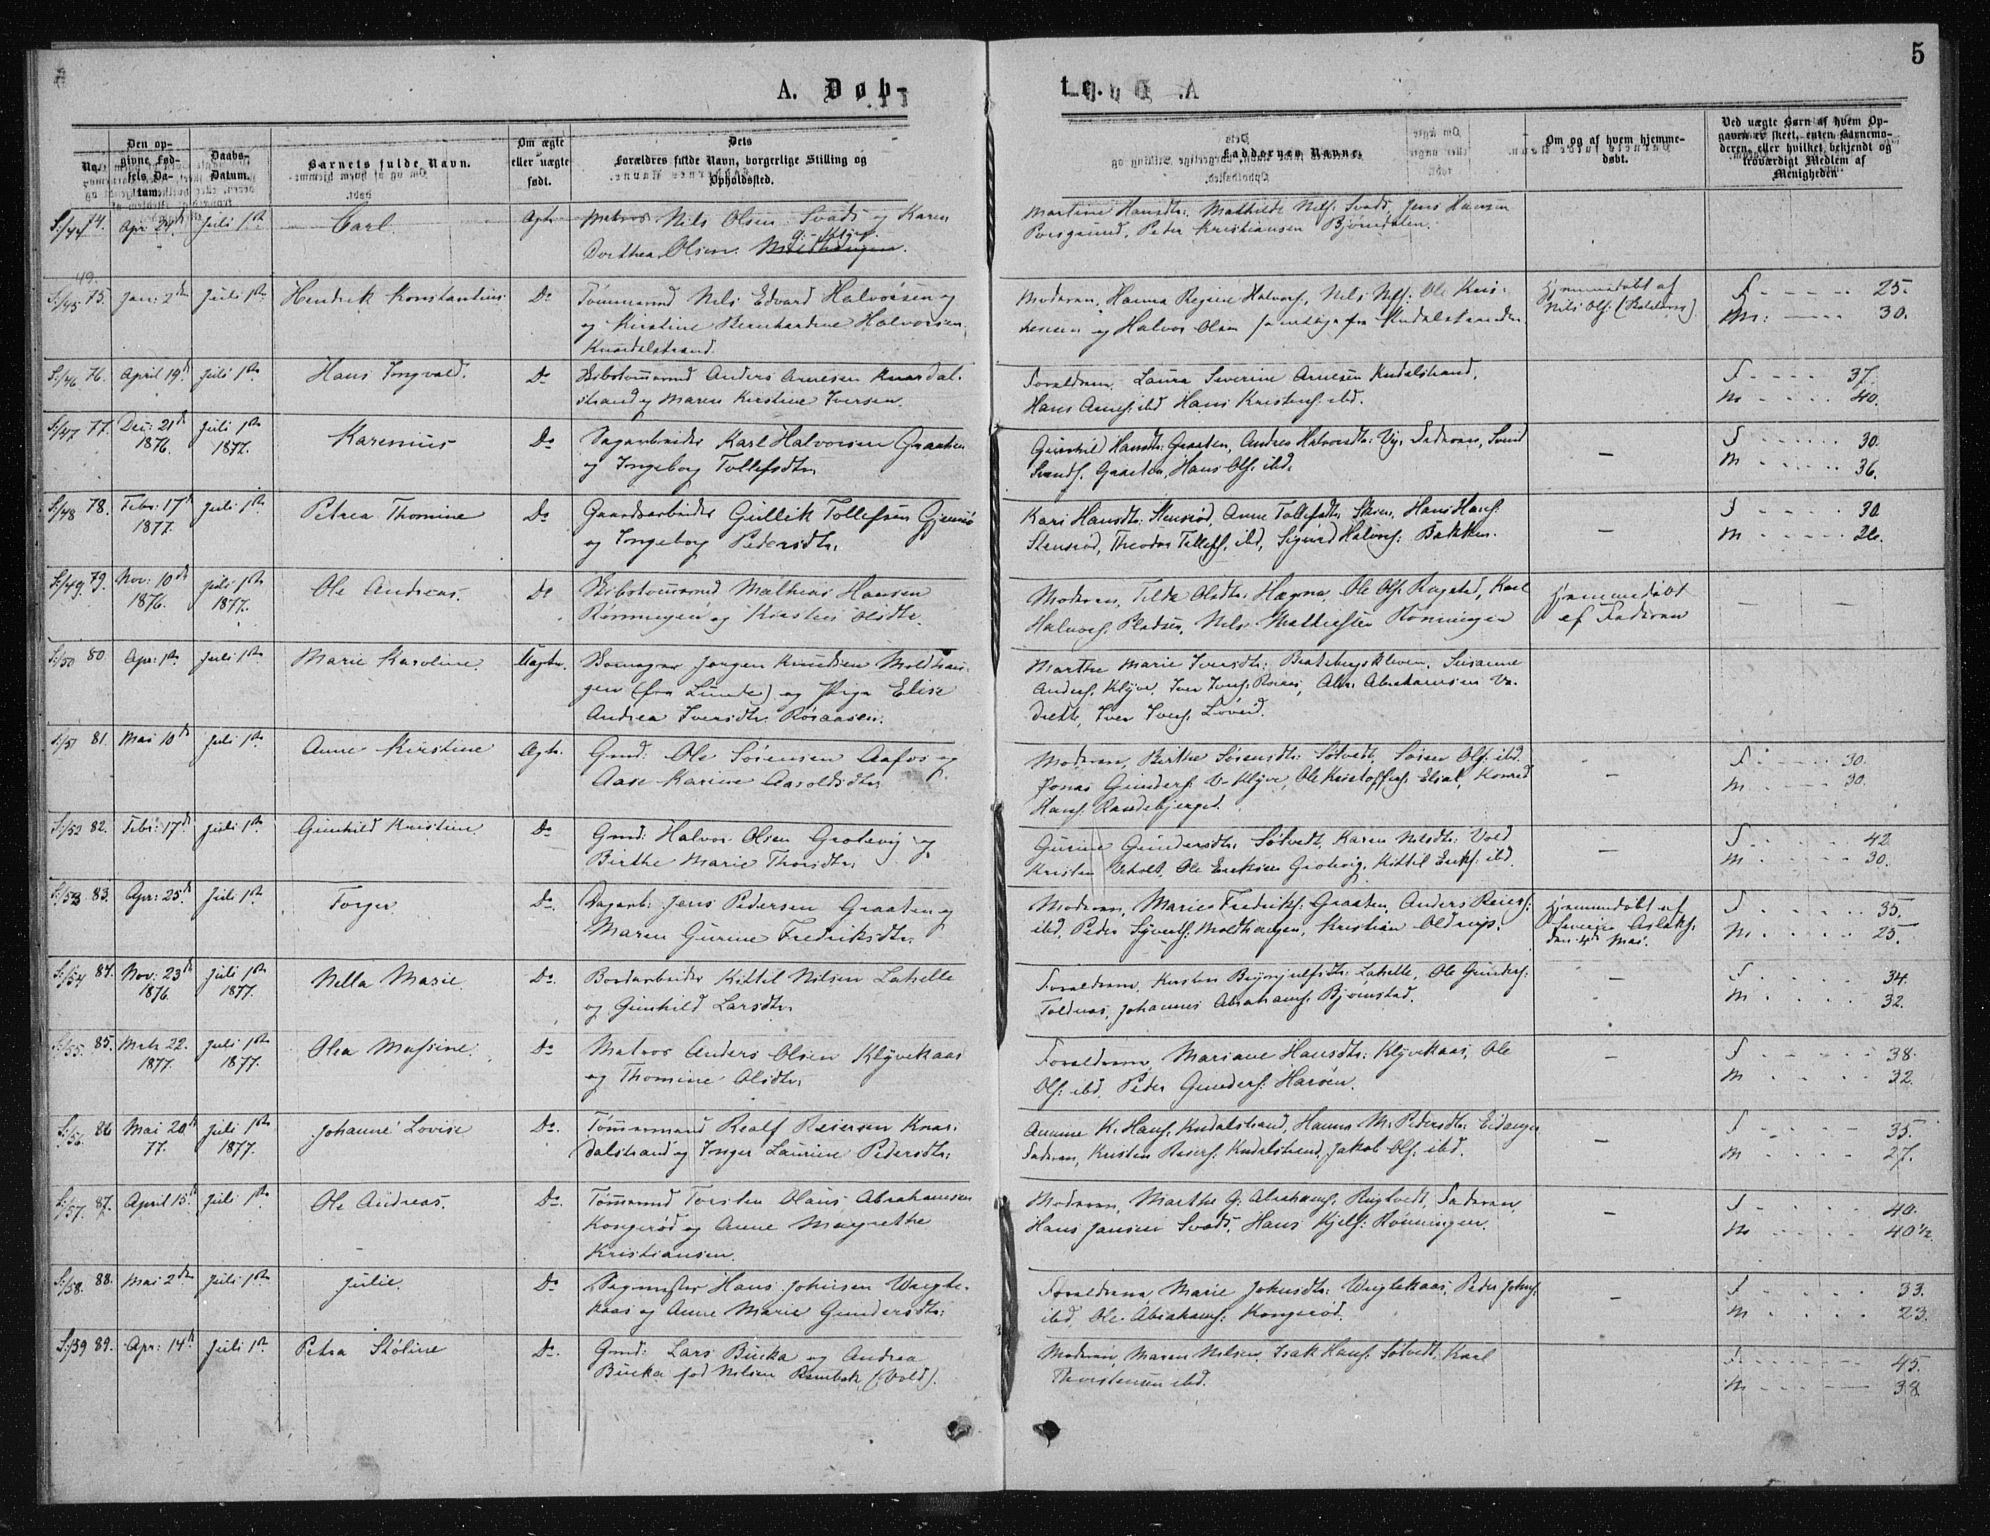 5
A. Døb-
te.
No.
Den op-
givne Fød-
sels Da-
tum.
Daabs-
Datum.
Barnets fulde Navn.
Om ægte
eller uægte
født.
Dets
Forældres fulde Navn, borgerlige Stilling og
Opholdssted.
Faddernes Navne.
Om og af hvem hjemme-
døbt.
Ved uægte Børn af hvem Op-
gaven er skeet, enten Barnemo-
deren, eller hvilket bekjendt og
troværdigt Medlem af
Menigheden
S:/44 74. Apr: 24de Juli 1ste Carl Ægte Matros Nils Olsen Svads og Karen
Dorthea Olsen
Martine Hansdtr: Mathilde Nilss: Svads, Jens Hansen
Porsgrund, Peder Kristiansen Bjørndalen.
49.
S:/45 75. Jan: 2den Juli 1ste Hendrik Konstantius Do Tømmermd Nils Edvard Halvorsen og
og Kirstine Bernhardine Halvorsen
Knardalstrand.
Moderen, Hanna Regine Halvors, Nils Nilss: Ole Kris-
tensen og Halvor Olsen samtlige fra Kndalstranden
Hjemmedøbt af
Nils Ols.
F 25.
M: 30.
S:/46 76. April 19de Juli 1ste Hans Ingvald. Do Skibstømmermd Anders Arnesen Knardal-
strand og Maren Kirstine Iversen.
Forældrene, Laura Severine Arnesen Kndalstrand,
Hans Arness: ibd Hans Kristens: ibd.
F 37.
M 40.
S:/47 77. Dec: 21de Juli 1ste Karenius Do Sagarbeider Karl Halvorsen Graaten
1876. 1877.
og Ingeborg Tollefsdtr.
Gunhild Hansdtr: Graaten, Andrea Halvorsdtr: Vy, Faderen, Svend
Svends. Graaten, Hans Ols. ibd.
–
F 30.
M 36.
S:/48 78. Febr: 17de Juli 1ste Petrea Thomine Do Gaardsarbeider Gullik Tollefsen Gjemsø
1877.
og Ingeborg Pedersdtr.
Kari Hansdtr: Stensrød, Anne Tollefsdtr: Skien, Hans Hans:
Stensrød, Theodor Tollefs. ibd, Sigurd Halvors: Bakken.
–
F 30
M 26.
S:/49 79. Nov: 10de Juli 1ste Ole Andreas. Do Skibstømmermd Mathias Hansen
1876. 1877.
Rønningen og Kirsten Olsdtr.
Moderen, Tilda Olsdtr: Hægna, Ole Ols. Rugstad, Karl
Halvors. Pladsen, Nils Mathisen Rønningen
Hjemmedøbt
af Faderen
– –
S:/50 80. Apr: 1ste Juli 1ste Marie Karoline Uægte. Jørgen Knudsen Moldhau-
gen (fra Lunde) og Pige Elise
Andrea Iversdtr. Røraasen.
Marthe Marie Iversdtr: Bratsbergskleven, Susanne
Anders. Klyve, Iver Ivers. Roraas, Abr. Abrahamsen Va-
drette, Iver Ivers. Løveid.
S:/51 81. Mai 10de Juli 1ste Anne Kirstine Ægte. Gmd: Ole Sørensen Aafos og
Aase Karine Aaroldsdtr.
Moderen, Birthe Sørensdtr: Søtvedt, Søren Ols. ibd.
Jonas Gunders. V-Klyve, Ole Kristoffers. Eriksl, Konrad
Hans. Raudebjerget.
–
F 30.
M 30.
S:/52 82. Febr: 17de Juli 1ste Gunhild Kristine Do Gmd: Halvor Olsen Grotevig og
Birthe Marie Thorsdtr.
Gurine Gundersdtr. Søtvedt, Karen Nilsdtr: Vold
Kristen Aaholt, Ole Eriksen Grotevig, Kittil Eriks. ibd.
–
F 42
M 30.
S:/53 83. Apr: 25de Juli 1ste Torger Do. Dagarb: Jens Pedersen Graaten og
Maren Gurine Fredriksdtr.
Moderen, Marie Fredriks. Graaten, Anders Reiers:
ibd, Peder Syvers. Moldhaugen, Kristian Oldrups.
Hjemmedøbt af
Severin Aslaks.
den 4de Mai.
F 35.
M 25.
S:/54 84. Nov: 23de Juli 1ste Nella Marie Do. Bordarbeider Kittil Nilsen Lahelle
1876. 1877.
og Gunhild Larsdtr.
Forældrene, Kirsten Brynjulfsdtr: Lahelle, Ole Gunders.
Toldnæs, Johannes Abrahams. Bjørnstad.
–
F 34.
M 32.
S:/55. 85. Mrts 22. Juli 1ste Olea Massine. Do Matros Anders Olsen Klyvekaas
1877. 1877.
og Thomine Olsdtr.
Forældrene, Mariane Hansdtr: Klyvekaas, Ole
Ols: ibd. Peder Gunders. Harøen.
–
F 38.
M 32.
S:/56. 86 Mai 20de Juli 1ste Johanne Lovise Do. Tømmermand Realf Reiersen Knar-
77. 1877.
dalstrand og Inger Laurine Pedersdtr:
Anne K. Hans. Kndalstrand, Hanna M. Pedersdtr: Eidanger
Faderen, Kirsten Reiers. Kndalstrand, Jakob Ols: ibd.
–
F 35.
M 27.
S:/57. 87. April 15de Juli 1ste Ole Andreas. Do. Tømmermd Torsten Olaus Abrahamsen
Kongerød og Anne Margrethe
Kristiansen.
Moderen, Marthe G: Abrahams. Rugtvedt, Faderen,
Hans Jansen Svads, Hans Kjels: Hønningen.
–
F 40.
M 40½
S:/58. 88. Mai 2den Juli 1ste Julie Do Sagmester Hans Johnsen Vægte-
kaas og Anne Marie Gundersdtr.
Forældrene Marie Johnsdtr: Vægtekaas, Peder Johns
ibd, Ole Abrahams: Kongerød.
–
F 33.
M 23.
S:/59 89. Apr: 14de Juli 1ste Petra Stoline Do. Gmd: Lars Bucka og Andrea
Bucka fød Nilsen Rambæk (Vold).
Moderen, Maren Nilsen, Isak Hans. Søtvedt, Karl
Thorstensen ibd.
F 45.
M 38